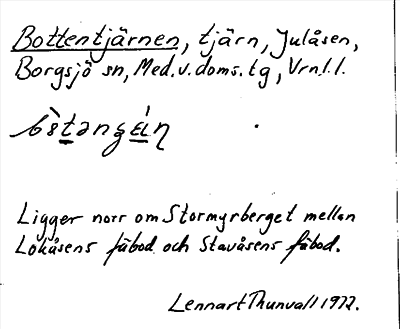 Bottentjärnen, tjärn, Julåsen,
Borgsjö sn, Med.v.doms.tg, Vrnl.l.
Ligger norr om Stormyrberget mellan
Lokåsens fäbod och Stavåsens fäbod.
Lennart Thunvall 1972.